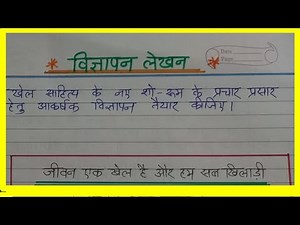 विज्ञापन लेखन
Date
Page
खेल साहित्य के नए शो-रूम के प्रचार प्रसार
हेतु आकर्षक विज्ञापन तैयार कीजिए।
जीवन एक खेल है और हम सब खिलाड़ी